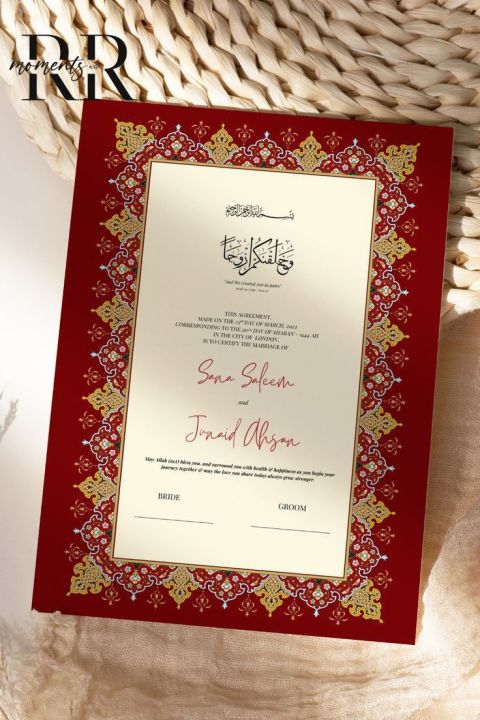 RR
moments with
بسم الله الرحمن الرحيم
وَخَلَقْنَاكُمْ أَزْوَاجًا
"And We created you in pairs"
THIS AGREEMENT,
MADE ON THE 27TH DAY OF MARCH, 2022
CORRESPONDING TO THE 20TH DAY OF SHABAN - 1444 AH
IN THE CITY OF LONDON,
IS TO CERTIFY THE MARRIAGE OF
Sana Saleem
and
Junaid Ahsan
May Allah (swt) bless you, and surround you with health & happiness as you begin your
journey together & may the love you share today always grow stronger.
BRIDE
GROOM